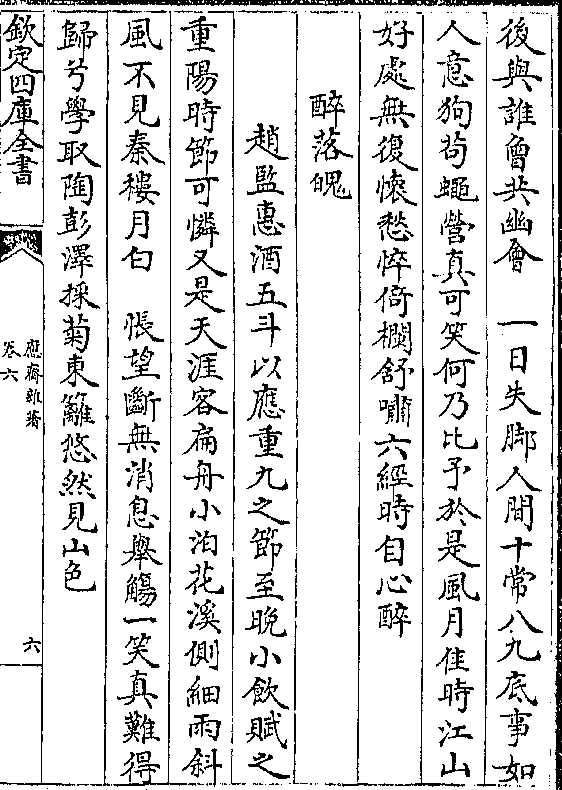 後與誰曾共幽會　一日失脚人間十常八九底事如
人意狗茍蠅營真可笑何乃比予於是風月佳時江山
好處無復懷愁悴倚欄舒嘯六經時自心醉
醉落魄
趙監惠酒五斗以應重九之節至晚小飲賦之
重陽時節可憐又是天涯客扁舟小泊花溪側細雨斜
風不見秦樓月白　悵望斷無消息舉觴一笑真難得
歸兮學取陶彭澤採菊東籬悠然見山色
欽定四庫全書
應齋雜著
卷六
六